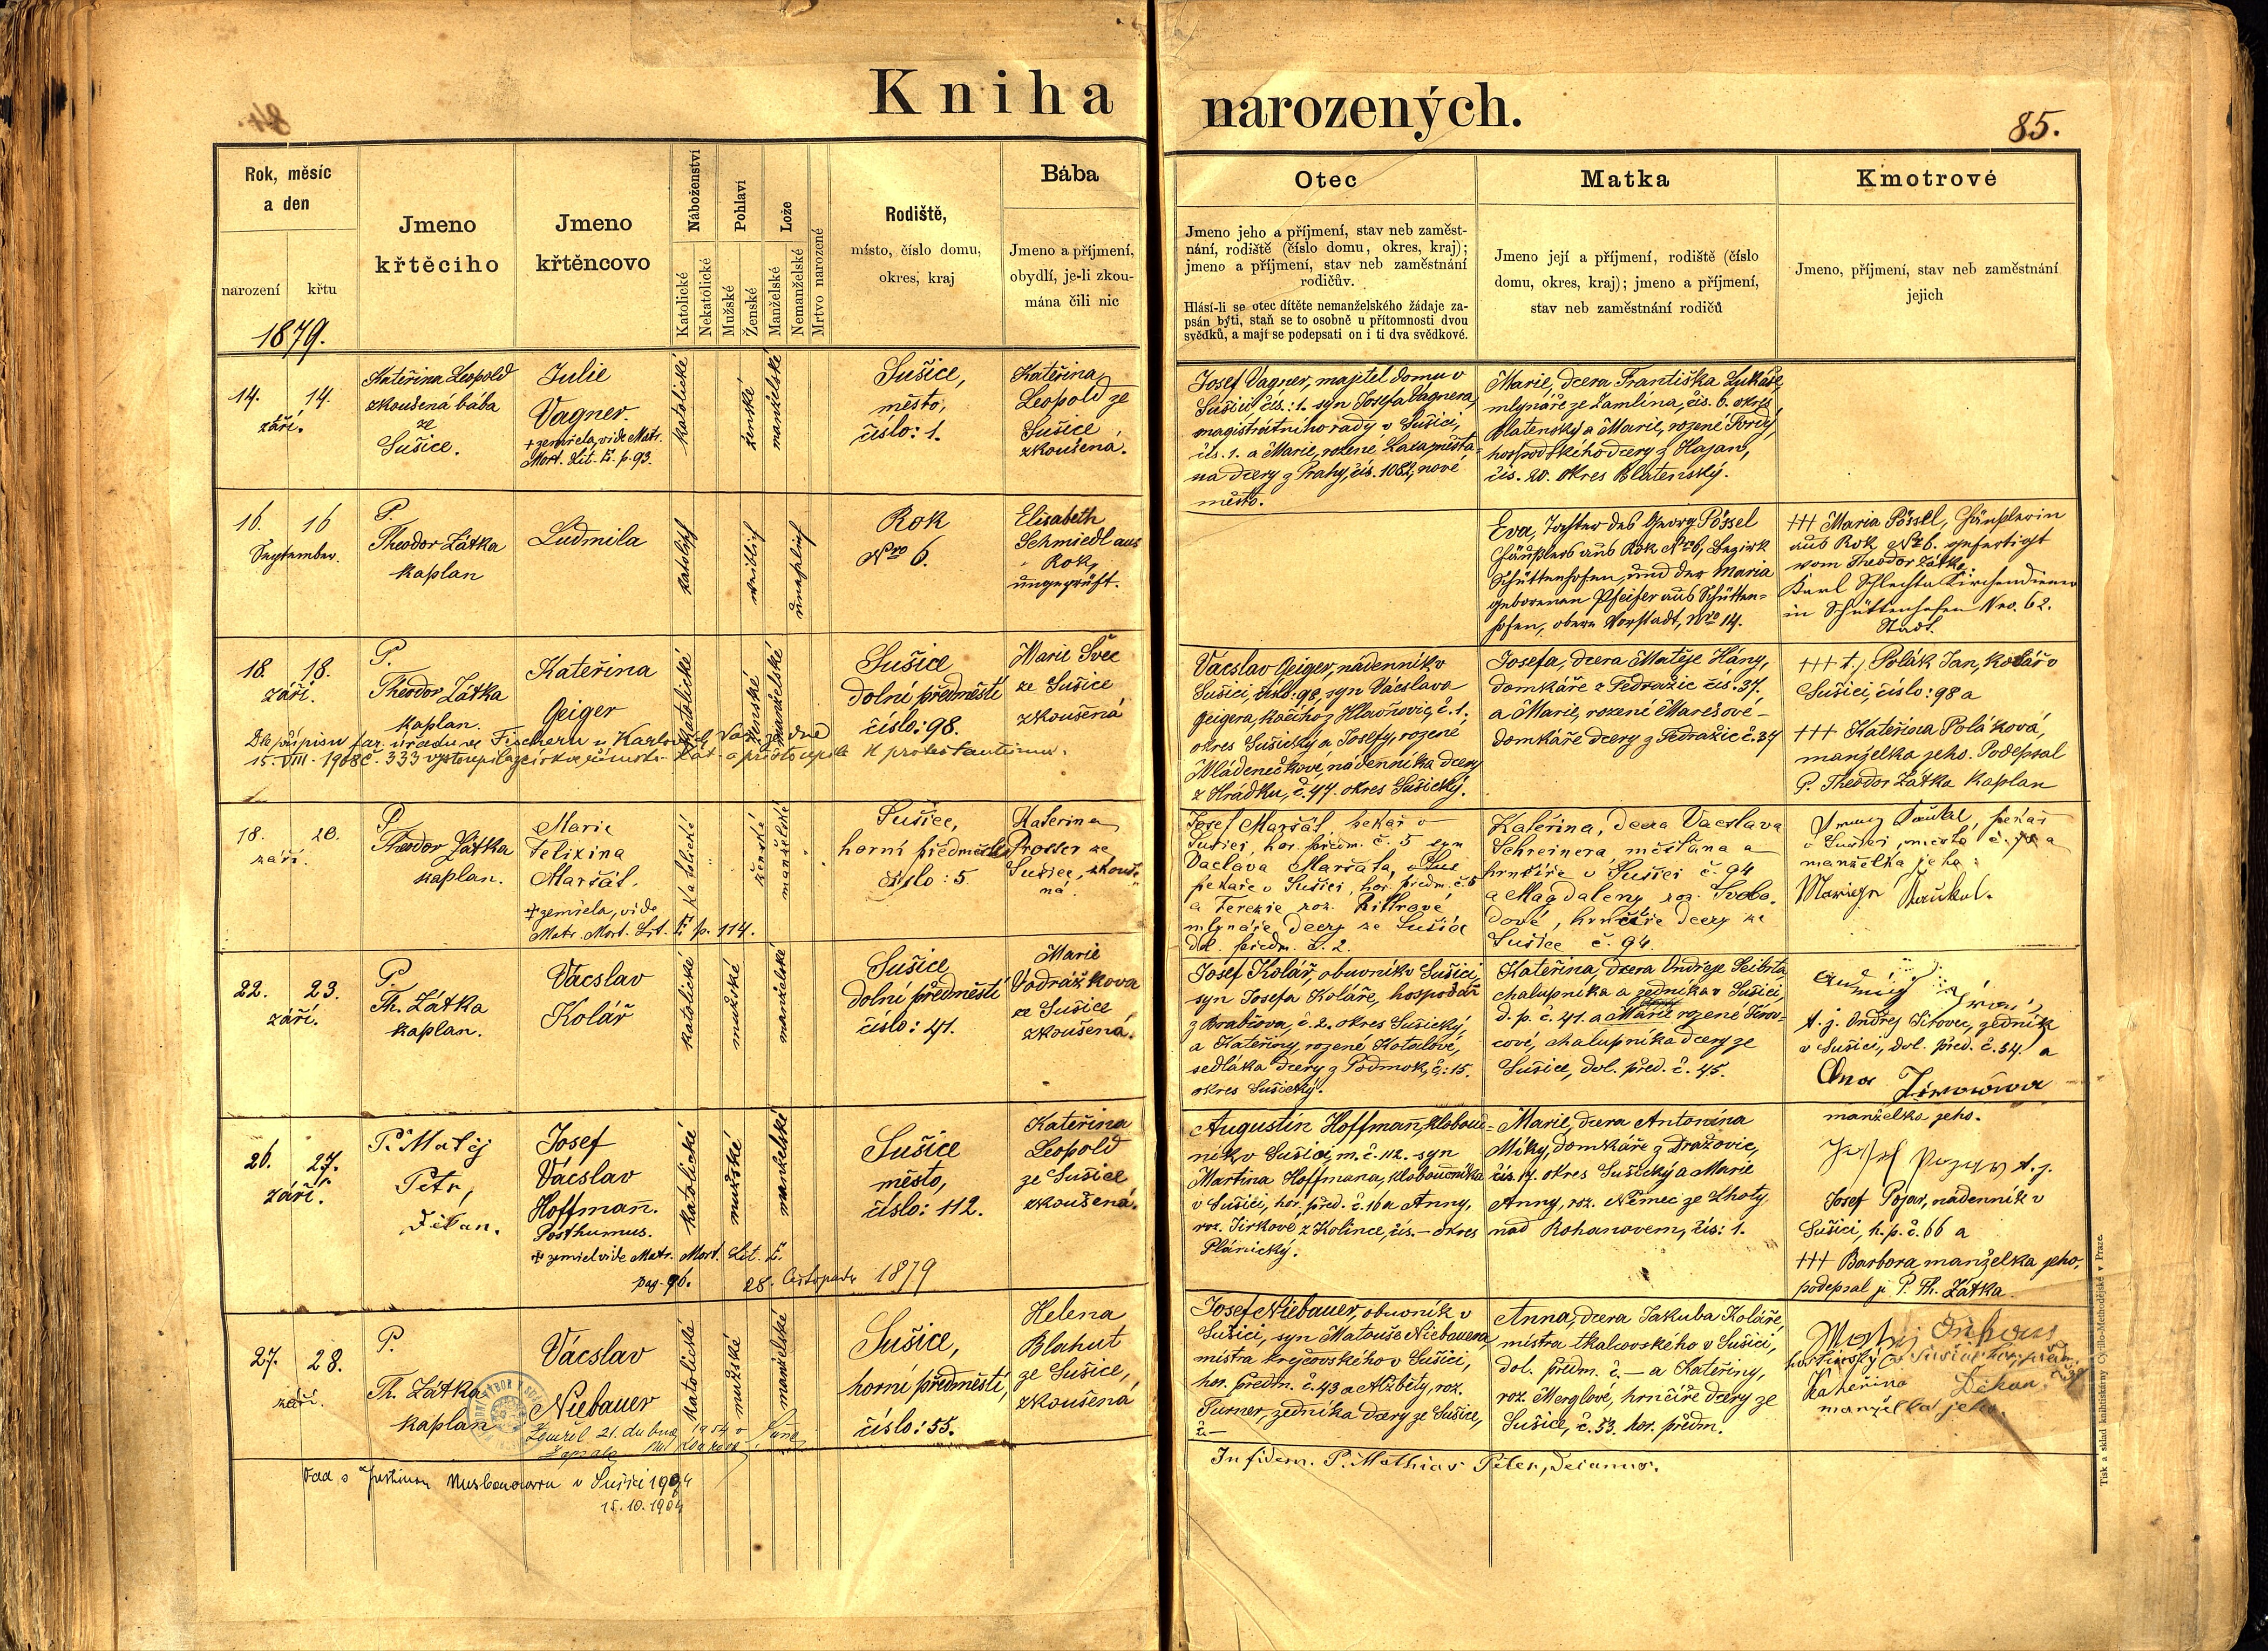 Kniha narozených.
85.
Rok, měsíc
a den
narození
křtu
1879.
Jmeno
křtěciho
Jmeno
křtěncovo
Náboženství
Katolické
Nekatolické
Pohlaví
Mužské
Ženské
Lože
Manželské
Nemanželské
Mrtvo narozené
Rodiště,
místo, číslo domu,
okres, kraj
Bába
Jmeno a příjmení,
obydlí, je-li zkou-
mána čili nic
Otec
Jmeno jeho a příjmení, stav neb zaměst-
nání, rodiště (číslo domu, okres, kraj);
jmeno a příjmení, stav neb zaměstnání
rodičův.
Hlásí-li se otec dítěte nemanželského žádaje za-
psán býti, staň se to osobně u přítomnosti dvou
svědků, a mají se podepsati on i ti dva svědkové.
Matka
Jmeno její a příjmení, rodiště (číslo
domu, okres, kraj); jmeno a příjmení,
stav neb zaměstnání rodičů
Kmotrové
Jmeno, příjmení, stav neb zaměstnání
jejich
14. 14.
září.
Kateřina Leopold
zkoušená bába
ze
Sušice.
Julie
Vagner
+ zemřela, vide Matr.
Mort. Lit. E. p. 93.
katolické
ženské
manželské
Sušice,
město,
číslo: 1.
Kateřina
Leopold ze
Sušice
zkoušená.
Josef Vagner, majitel domu v
Sušici čís.: 1. syn Josefa Vagnera,
magistrátního rady v Sušici,
čís. 1. a Marie, rozené
na dcery z Prahy, čís. 1082, nové
město.
Marie, dcera Františka Lukáše,
mlynáře ze Zamlina, čís. 6. okres
Blatenský a Marie, rozené
hospodského dcery z Hajan,
čís. 20. okres Blatenský.
16. 16
September.
P.
Theodor Zátka
kaplan
Ludmila
katolisch
weiblich
unehelich
Rok
Nro 6.
Elisabeth
Schmiedl aus
Rok,
ungeprüft.
Eva, Tochter des Georg Pössel
Häuslers aus Rok Nro 6, Bezirk
Schüttenhofen, und der Maria
geborenen Pfeifer aus Schütten-
hofen, obere Vorstadt, Nro 14.
+++ Maria Pössel, Häuslerin
aus Rok Nr 6. gefertigt
vom Theodor Zátka.
Karl Schlechta Kirchendiener
in Schüttenhofen Nro. 62.
Stadt.
18. 18.
září.
P.
Theodor Zátka
kaplan.
Kateřina
Geiger
katolické
ženské
manželské
Sušice
dolní předměstí
číslo: 98.
Marie Švec
ze Sušice
zkoušená
Dle přípisu far. úřadu ve Fischern u Karlových Var ze dne
15. VIII. 1908 č. 333 vystoupila z církve římsko-kat. a přistoupila k protestantismu.
Vácslav Geiger, nádenník v
Sušici, číslo: 98, syn Vácslava
Geigera, kočího z Hlavňovic, č. 1.
okres Sušický a Josefy, rozené
Mládenečkové, nádenníka dcery
z Hrádku, č. 47. okres Sušický.
Josefa, dcera Matěje Hány,
domkáře z Tedražic čís. 37.
a Marie, rozené Marešové –
domkáře dcery z Tedražic č. 34
+++ t. j. Polák Jan, kolář v
Sušici, číslo: 98 a
+++ Kateřina Poláková,
manželka jeho. Podepsal
P. Theodor Zátka kaplan
18. 20.
září.
P.
Theodor Zátka
kaplan.
Marie
Felixina
Maršát.
+ zemřela, vide
Matr. Mort. Lit. E p. 114.
katolické
ženské
manželské
Sušice,
horní předměstí
číslo: 5.
Kateřina
Prosser ze
Sušice, zkouše-
ná
Josef Maršát, pekař v
Sušici, hor. předm. č. 5 syn
Vaclava Maršáta,
pekaře v Sušici, hor. předm. č. 5
a Terezie roz. Rittrové
mlynáře dcery ze Sušice
dol. předm. č. 2.
Kateřina, dcera Vacslava
Schreinera měšťana a
hrnčíře v Sušici č. 94
a Magdaleny roz. Svobo-
dové, hrnčíře dcery ze
Sušice č. 94.
pekař
v Sušici, město č. a
manželka jeho:
22. 23.
září.
P.
Th. Zátka
kaplan.
Vácslav
Kolář
katolické
mužské
manželské
Sušice
dolní předměstí
číslo: 41.
Marie
Vodrážkova
ze Sušice
zkoušená.
Josef Kolář, obuvník v Sušici,
syn Josefa Koláře, hospodář
z Brabčova, č. 2. okres Sušický,
a Kateřiny, rozené Kotalové,
sedláka dcery z Podmok, č: 15.
okres Sušický.
Kateřina, dcera Ondřeje Seibrta,
chalupníka a zedníka v Sušici,
d. p. č. 41. a Marie rozené Sirov-
cové, chalupníka dcery ze
Sušice, dol. před. č. 45.
t. j. Ondřej Sirovec, zedník
v Sušici, dol. před. č. 34. a
Ana
manželka jeho.
26. 27.
září.
P. Matěj
Petr,
děkan.
Josef
Vácslav
Hoffmann.
Posthumus.
+ zemřel vide Matr. Mort. Lit. E.
pag. 96. 28. listopadu 1879
katolické
mužské
manželské
Sušice
město,
číslo: 112.
Kateřina
Leopold
ze Sušice
zkoušená.
Augustin Hoffmann, klobouč-
ník v Sušici, m. č. 112. syn
Martina Hoffmana, kloboučníka
v Sušici, hor. před. č. 16 a Anny,
roz. Jirkové z Kolince, čís. – okres
Plánický.
Marie, dcera Antonína
Míky, domkáře z Dražovic,
čís. 17. okres Sušický a Marie
Anny, roz. Němec ze Lhoty
nad Rohanovem, čís: 1.
Josef Pojar t. j.
Josef Pojar, nádenník v
Sušici, h. p. č. 66 a
+++ Barbora manželka jeho,
podepsal je P. Th. Zátka.
27. 28.
září.
P.
Th. Zátka
kaplan
Vácslav
Niebauer
Zemřel 21. dubna 1954 v Sušici
katolické
mužské
manželské
Sušice,
horní předměstí,
číslo: 55.
Helena
Blahut
ze Sušice,
zkoušená
Josef Niebauer, obuvník v
Sušici, syn Matouše Niebauera,
mistra krejčovského v Sušici,
hor. předm. č. 43 a Alžběty, roz.
Purner, zedníka dcery ze Sušice,
č. –
Anna, dcera Jakuba Koláře,
mistra tkalcovského v Sušici,
dol. předm. č. – a Kateřiny,
roz. Merglové, hrnčíře dcery ze
Sušice, č. 53. hor. předm.
Kateřina Děkan,
manželka jeho.
v Sušici 1904
15.10.1904
In fidem. P. Mathias Peter, Decanus.
Tisk a sklad knihtiskárny Cyrillo-Methodějské v Praze.